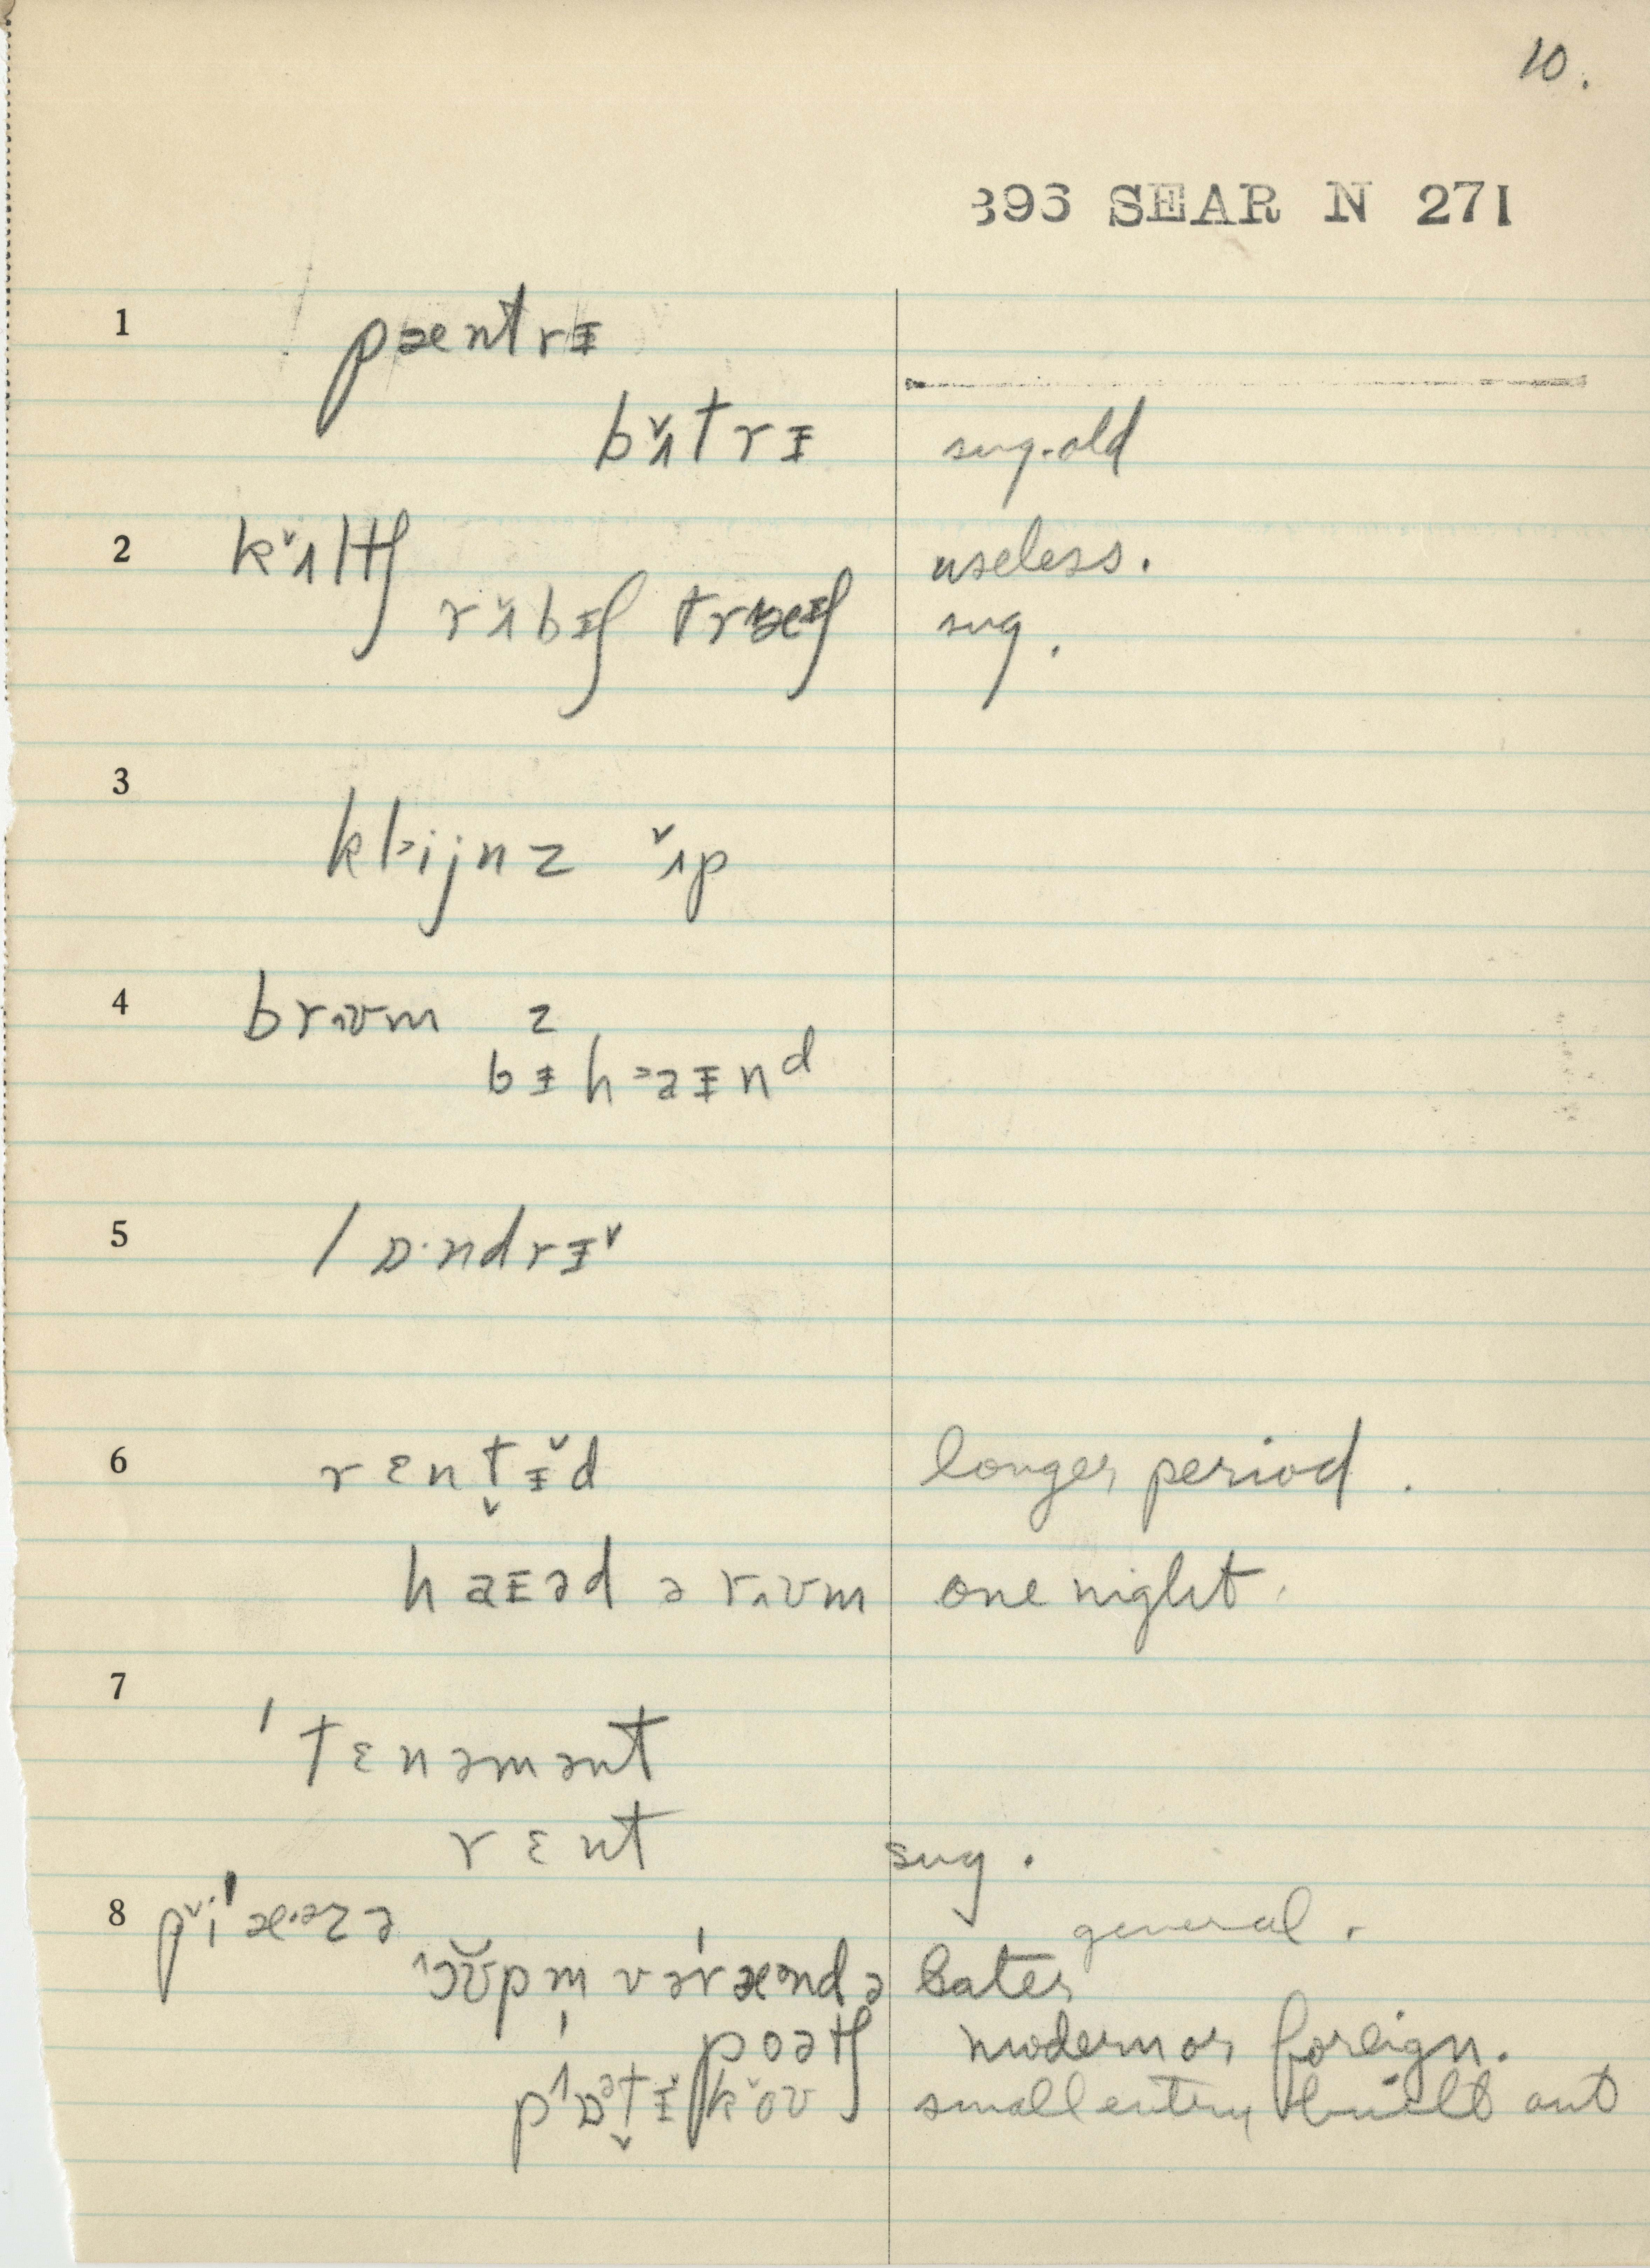 10.
396 SEAR N 271
1 pæntrɪ
bʌ̌trɪ sug. old
2 kʌ̌ltʃ useless.
rʌ̌bɪʃ træʃ sug.
3 kl>ijnz ʌ̌p
4 brʌʊm z
bɪh>aɪnᵈ
5 lɒ·ndrɪˇ
6 rɛnt̬ɪ̌d longer period.
haɪəd ə rʌʊm one night.
7 'tɛnəmənt
rɛnt sug.
8 pˇi'æ·əzə general.
ɔʊpm̩ və'rændə Bates
poətʃ modern or foreign.
pɒət̬ɪkoʊ small entry built out